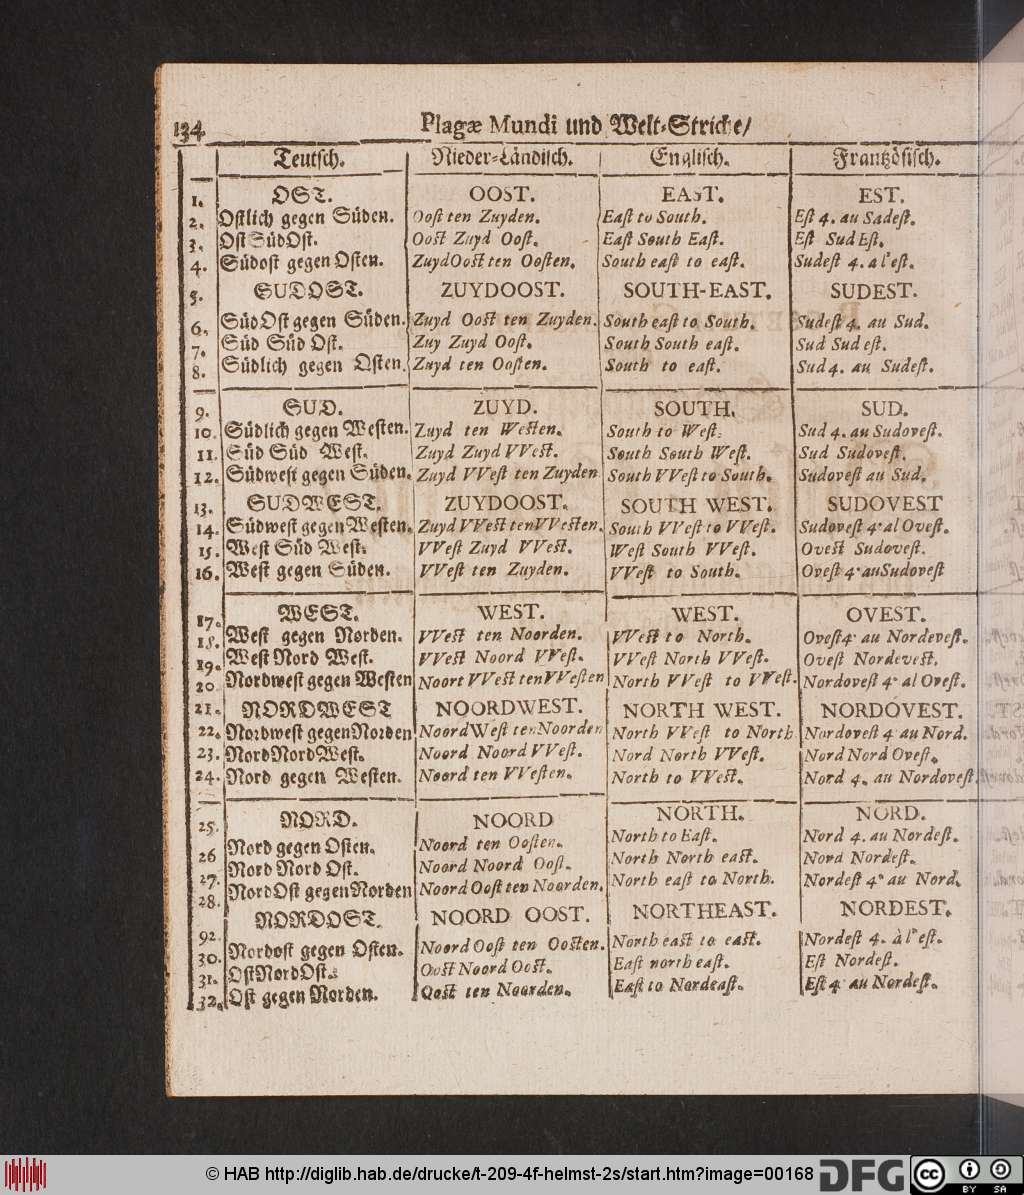 134 Plagæ Mundi und Welt-Striche/
Teutsch. Nieder-Ländisch. Englisch. Frantzösisch.
1. OST. OOST. EAST. EST.
2. Ostlich gegen Süden. Oost ten Zuyden. East to South. Est 4. au Sadest.
3. Ost Süd Ost. Oost Zuyd Oost. East South East. Est Sud Est.
4. Südost gegen Osten. Zuyd Oost ten Oosten. South east to east. Sudest 4. a l'est.
5. SUDOST. ZUYDOOST. SOUTH-EAST. SUDEST.
6. Süd Ost gegen Süden. Zuyd Oost ten Zuyden. South east to South. Sudest 4. au Sud.
7. Süd Süd Ost. Zuy Zuyd Oost. South South east. Sud Sud est.
8. Südlich gegen Osten. Zuyd ten Oosten. South to east. Sud 4. au Sudest.
9. SUD. ZUYD. SOUTH. SUD.
10. Südlich gegen Westen. Zuyd ten Westen. South to West. Sud 4. au Sudovest.
11. Süd Süd West. Zuyd Zuyd VVest. South South West. Sud Sudovest.
12. Südwest gegen Süden. Zuyd VVest ten Zuyden South VVest to South. Sudovest au Sud.
13. SUDWEST. ZUYDOOST. SOUTH WEST. SUDOVEST
14. Südwest gegen Westen. Zuyd VVest ten VVesten. South VVest to VVest. Sudovest 4. al Ovest.
15. West Süd West. VVest Zuyd VVest. West South VVest. Ovest Sudovest.
16. West gegen Süden. VVest ten Zuyden. VVest to South. Ovest 4. au Sudovest
17. WEST. WEST. WEST. OVEST.
18. West gegen Norden. VVest ten Noorden. VVest to North. Ovest 4. au Nordevest.
19. West Nord West. VVest Noord VVest. VVest North VVest. Ovest Nordevest.
20. Nordwest gegen Westen Noort VVest ten VVesten North VVest to VVest. Nordovest 4. al Ovest.
21. NORDWEST NOORDWEST. NORTH WEST. NORDOVEST.
22. Nordwest gegen Norden Noord West ten Noorden North VVest to North Nordovest 4 au Nord.
23. Nord Nord West. Noord Noord VVest. Nord North VVest. Nord Nord Ovest.
24. Nord gegen Westen. Noord ten VVesten. North to VVest. Nord 4. au Nordovest.
25. NORD. NOORD NORTH. NORD.
26 Nord gegen Osten. Noord ten Oosten. North to East. Nord 4. au Nordest.
27. Nord Nord Ost. Noord Noord Oost. North North east. Nord Nordest.
28. Nord Ost gegen Norden Noord Oost ten Noorden. North east to North. Nordest 4. au Nord.
92. NORDOST. NOORD OOST. NORTHEAST. NORDEST.
30. Nordost gegen Osten. Noord Oost ten Oosten. North east to east. Nordest 4. à l'est.
31. Ost Nord Ost. Oost Noord Oost. East north east. Est Nordest.
32. Ost gegen Norden. Oost ten Noorden. East to Nordeast. Est 4. au Nordest.
© HAB http://diglib.hab.de/drucke/t-209-4f-helmst-2s/start.htm?image=00168 DFG cc BY SA